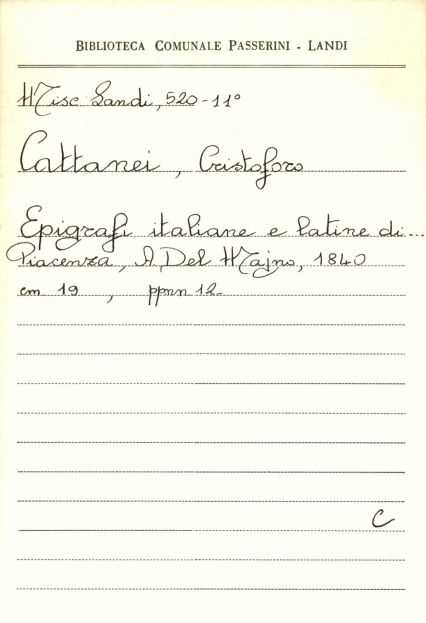 BIBLIOTECA COMUNALE PASSERINI - LANDI
Misc Landi, 520-11°
Cattanei, Cristoforo
Epigrafi italiane e latine di...
Piacenza, A. Del Majno, 1840
cm 19, ppnn 12
C